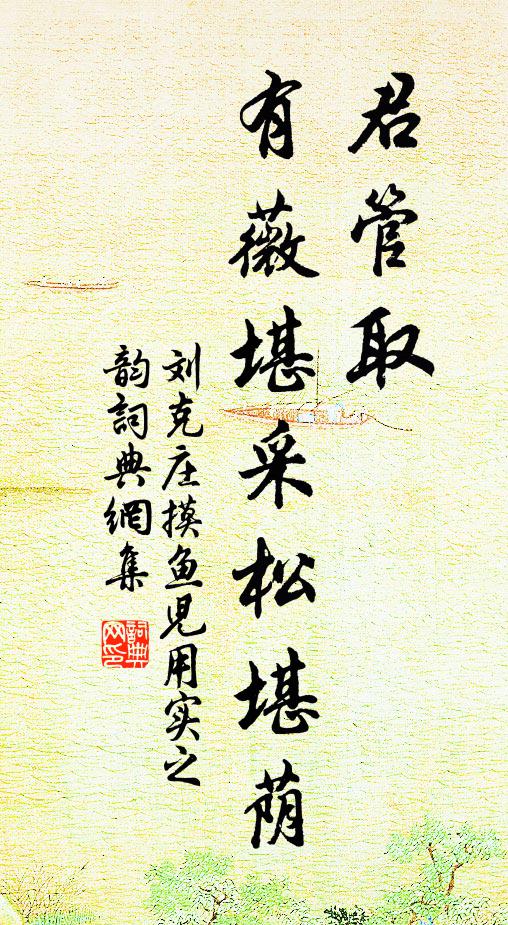 君管取
有薇堪采松堪荫
刘克庄摸鱼児用实之
韵詞典網集
詞典
网印